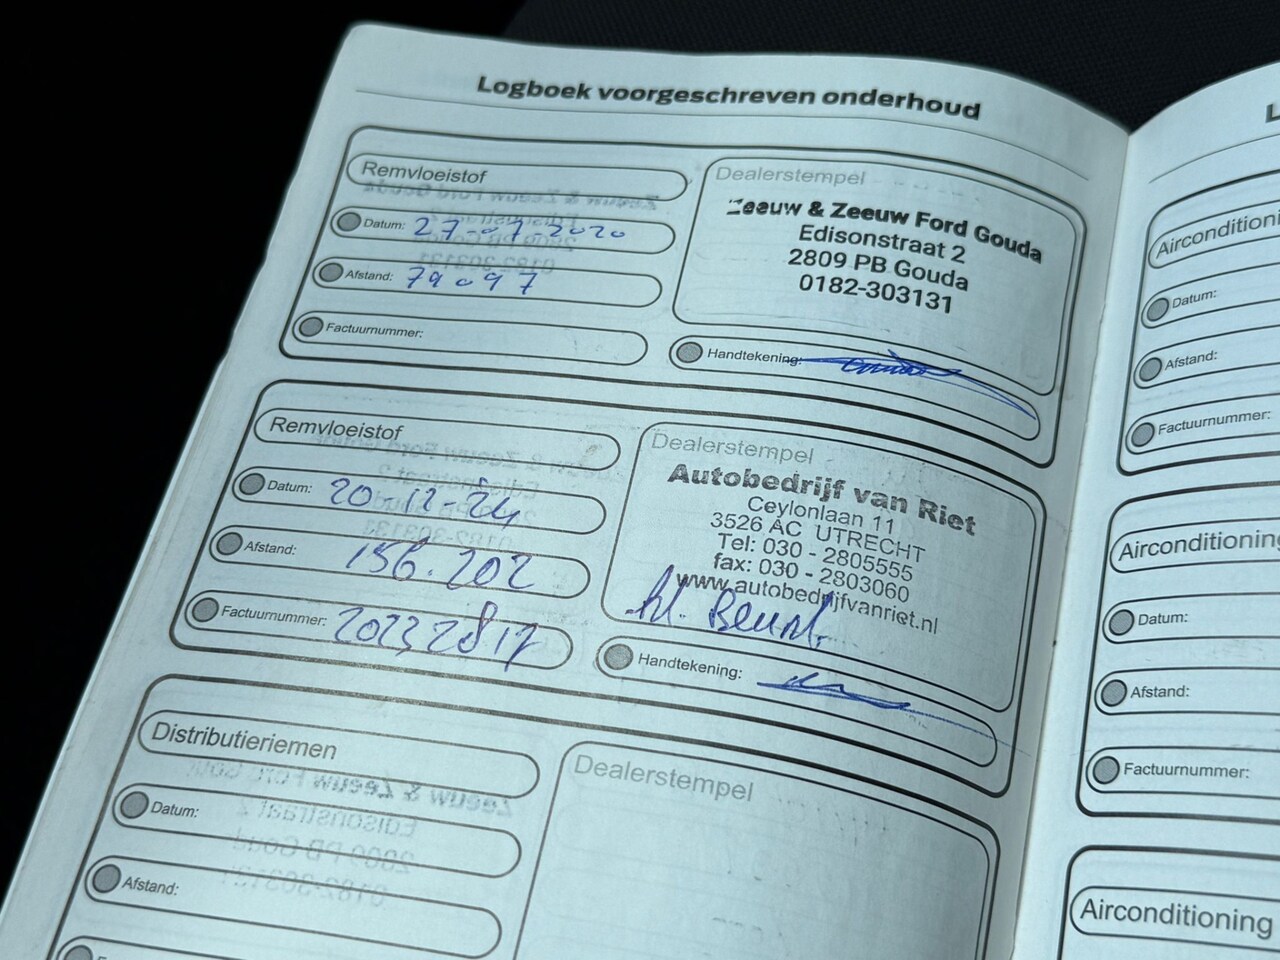 Logboek voorgeschreven onderhoud
Remvloeistof
Datum: 27-07-2020
Afstand: 79097
Factuurnummer:
Dealerstempel
Zeeuw & Zeeuw Ford Gouda
Edisonstraat 2
2809 PB Gouda
0182-303131
Handtekening:
Remvloeistof
Datum: 20-12-24
Afstand: 156.202
Factuurnummer: 20232817
Dealerstempel
Autobedrijf van Riet
Ceylonlaan 11
3526 AC UTRECHT
Tel: 030 - 2805555
fax: 030 - 2803060
www.autobedrijfvanriet.nl
Handtekening:
Distributieriemen
Datum:
Afstand:
Dealerstempel
Airconditioning
Datum:
Afstand:
Factuurnummer:
Airconditioning
Datum:
Afstand:
Factuurnummer:
Airconditioning